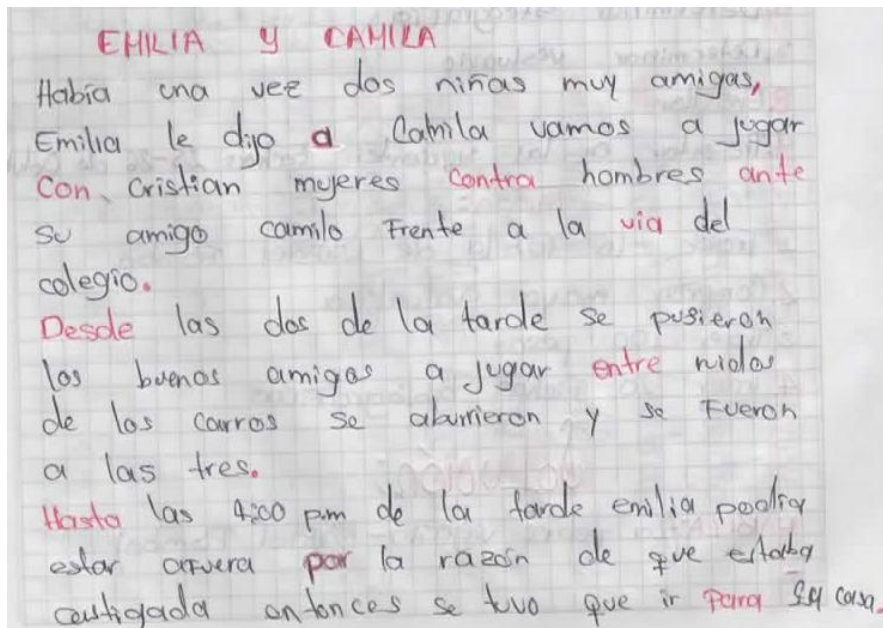 EMILIA y CAMILA
Había una vez dos niñas muy amigas,
Emilia le dijo a Camila vamos a jugar
con, cristian mujeres contra hombres ante
su amigo camilo Frente a la via del
colegio.
Desde las dos de la tarde se pusieron
los buenos amigos a jugar entre ruidos
de los carros se aburrieron y se Fueron
a las tres.
Hasta las 4:00 p.m de la tarde emilia podia
estar afuera por la razón de que estaba
castigada entonces se tuvo que ir para su casa.